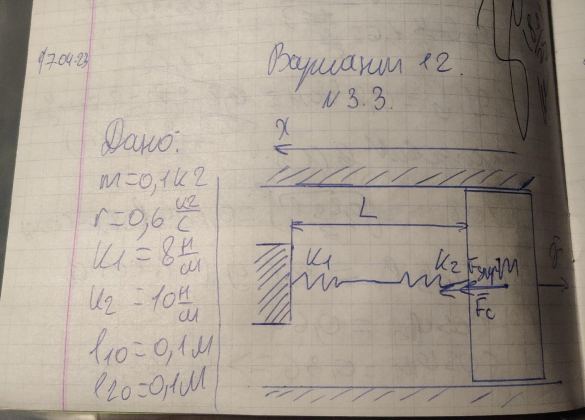 17.04.23
Вариант 12.
N 3.3.
Дано:
m=0,1 кг
r=0,6 кг/с
K1 = 8 Н/м
K2 = 10 Н/м
l10=0,1м
l20=0,1м
X
L
K1
K2
Fупр
M
Fc
v